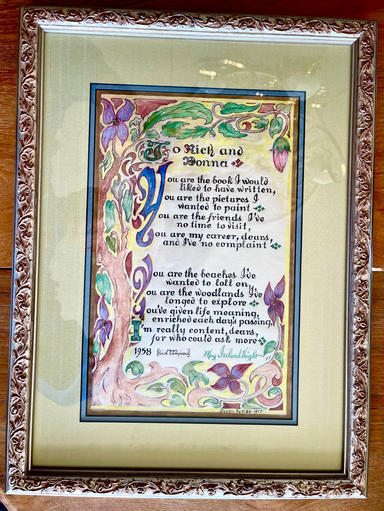 To Rick and
Donna
You are the book I would
liked to have written,
You are the pictures I
wanted to paint
You are the friends I've
no time to visit,
You are my career, dears,
and I've no complaint
You are the beaches I've
wanted to loll on,
You are the woodlands I've
longed to explore
You've given life meaning,
enriched each day's passing,
I'm really content, dears,
for who could ask more
1958
May Ireland Wright